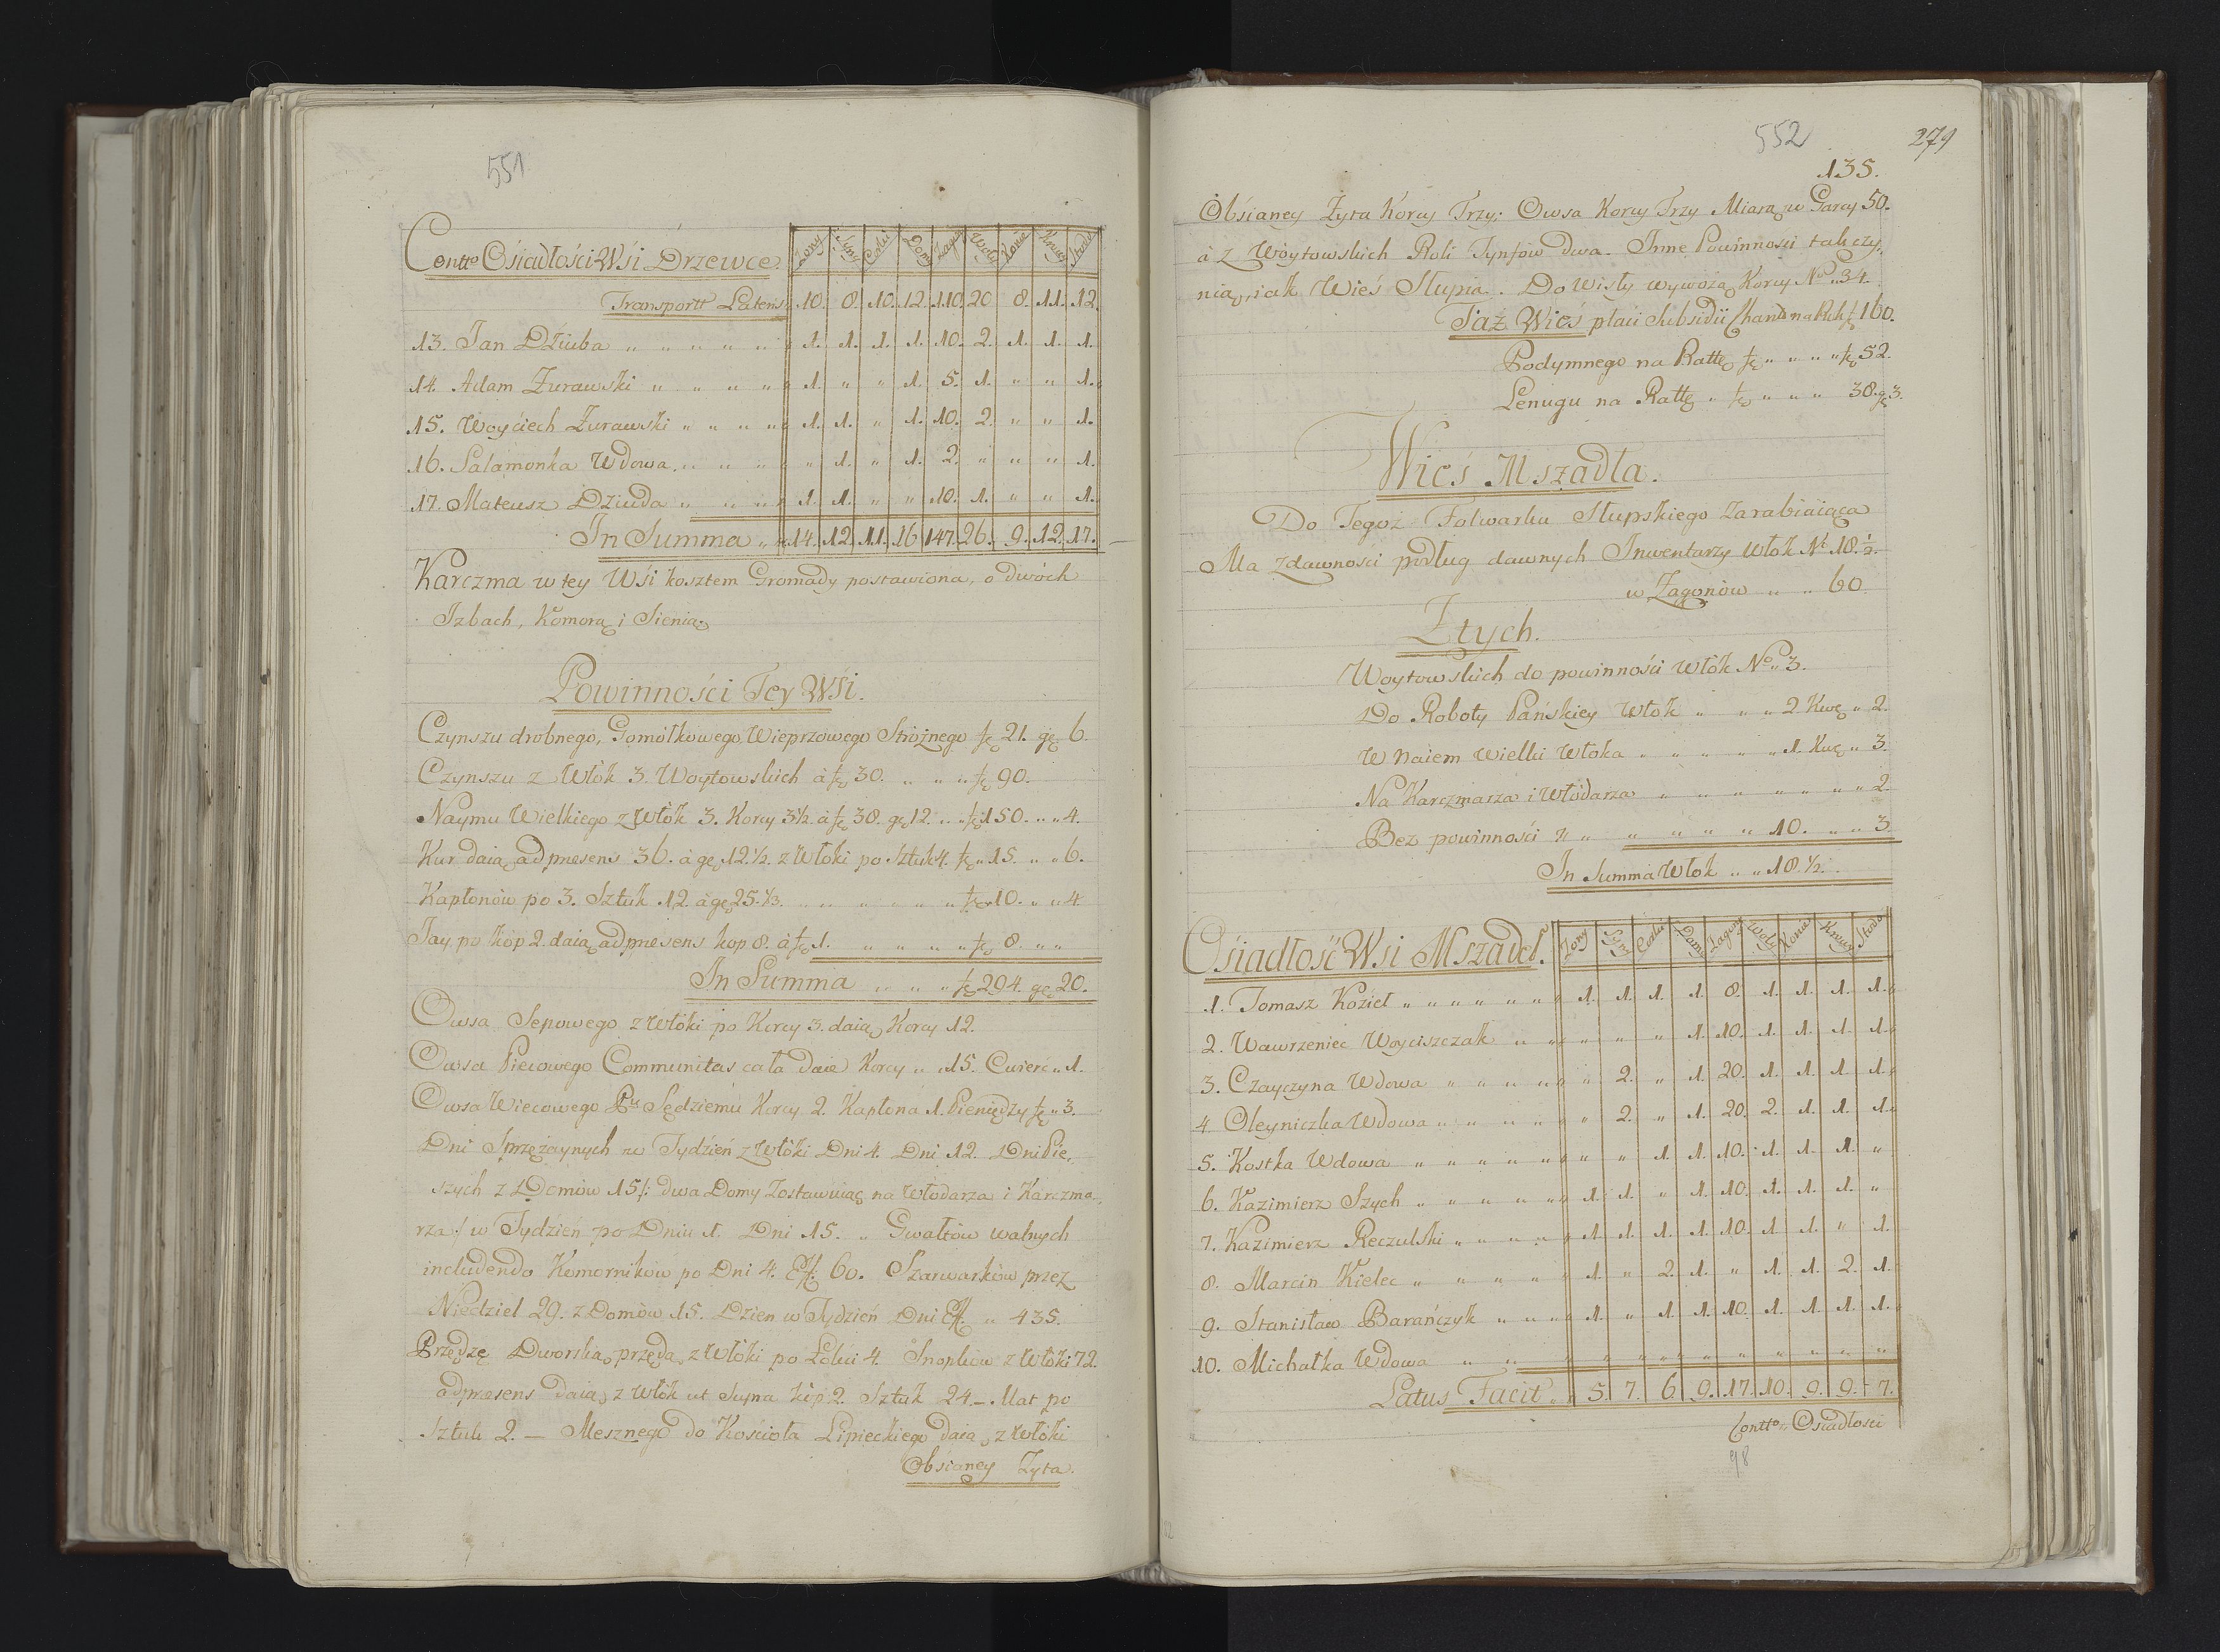 551
Contto Osiadłości Wśi Drzewce. Żony Syny Corki Domy Zagon Woły Konie Krowy Stodo
Transportt Latens 10. 8. 10. 12. 110. 20 8. 11. 12.
13. Jan Dźiuba " " " " " " 1. 1. 1. 1. 10. 2. 1. 1. 1.
14. Adam Żurawski " " " " " 1. " " 1. 5. 1. " " 1.
15. Woyćiech Żurawski " " " " " 1. 1. " 1. 10. 2. " " 1.
16. Salamonka Wdowa " " " " " 1. " 1. 2. " " " 1.
17. Mateusz Dziuda " " " " 1. 1. " " 10. 1. " " 1.
In Summa " " 14. 12. 11. 16 147. 26. 9. 12. 17.
Karczma w tey Wśi kosztem Gromady postawiona, o dwóch
Izbach, Komorą i Sienią.
Powinności Tey Wśi.
Czynszu drobnego, Gomółkowego, Wieprzowego Stróżnego fę 21. gę 6.
Czynszu z Włók 3. Woytowskich à fę 30. " " " fę 90.
Naymu Wielkiego z Włók 3. Korcy 3½. à fę 38. gę 12. " " fę 150. " " 4.
Kur daią ad præsens 36. à gę 12.½. z Włoki po Sztuk 4. fę " 15. " " 6.
Kapłonów po 3. Sztuk 12. à gę 25.⅓. " " " " " " fę 10. " " 4.
Jay po kop 2. daią ad præsens kop 8. à fę 1. " " " " " fę 8. " "
In Summa " " " fę 294. gę 20.
Owsa Sepowego z Włóki po Korcy 3. daią Korcy 12.
Owsa Piecowego Communitas cała daie Korcy " " 15. Cwierć " 1.
Owsa Wiecowego Pu Sędziemu Korcy 2. Kapłona 1. Pieniędzy fę " 3.
Dni Sprzężaynych w Tydzień z Włóki Dni 4. Dni 12. Dni Pie,
szych z Domów 15 /: dwa Domy Zostawuiąc na Włodarza i Karczma,
rza :/ w Tydzień po Dniu 1. Dni 15. " Gwałtów walnych
includendo Komorników po Dni 4. Eff. 60. Szarwarków przez
Niedziel 29. z Domów 15. Dzien w Tydzień Dni Eff. " 435.
Przędzę Dworską przędą z Włóki po Łokci 4. Snopków z Włóki 72.
ad præsens daią z Włók ut Supra kop 2. Sztuk 24. _ Mat po
Sztuk 2. _ Mesznego do Kościoła Lipieckiego daią z Włóki
Obsianey Żyta.
552
279
135.
Obsianey Żyta Korcy Trzy; Owsa Korcy Trzy Miarą w Garcy 50.
à z Woytowskich Roli Tynfów dwa. Inne Powinności tak czy,
nią, iak Wieś Słupia. Do Wisły wywożą Korcy No " 34.
Taż Wieś płaci Subsidii Charit na Rok fę 160.
Podymnego na Rattę fę " " " " fę 52.
Lenugu na Rattę " fę " " " 38. gę 3.
Wieś Mszadla.
Do Tegoż Folwarku Słupskiego Zarabiaiąca
Ma zdawności podług dawnych Inwentarzy Włok No 18.½.
w Zagonów " " 60
Z tych.
Woytowskich do powinności Włók No " 3.
Do Roboty Pańskiey Włok " " " 2 Kwę " 2.
W Naiem Wielki Włoka " " " " " 1. Kwę " 3.
Na Karczmarza i Włódarza " " " " " " " " 2.
Bez powinności " " " " " " 10. " " 3.
In Summa Włok " " 18.½.
Ośiadłość Wsi Mszadel. Żony Syny Corki Domy Zagony Woły Konie Krowy Stodo
1. Tomasz Kozieł " " " " " " " 1. 1. 1. 1. 8. 1. 1. 1. 1.
2. Wawrzeniec Woyciszczak " " " " " 1. 10. 1. 1. 1. 1.
3. Czayczyna Wdowa " " " " " " 2. " 1. 20. 1. 1. 1. 1.
4 Oleyniczka Wdowa " " " " " " 2. " 1. 20. 2. 1. 1. 1.
5. Kostka Wdowa " " " " " " " " 1. 1. 10. 1. 1. 1. "
6. Kazimierz Szych " " " " " " 1. 1. " 1. 10. 1. 1. 1. "
7. Kazimierz Reczulski " " " " " 1. 1. 1. 1. 10. 1. 1. " 1.
8. Marcin Kielec " " " " " 1. " 2. 1. " 1. 1. 2. 1.
9. Stanisław Barańczyk " " " " 1. " 1. 1. 10. 1. 1. 1. 1.
10. Michałka Wdowa " " " " " " " " " " " " "
Latus Facit " " 5. 7. 6. 9. 17. 10. 9. 9. 7.
Contto " Osiadłości
98